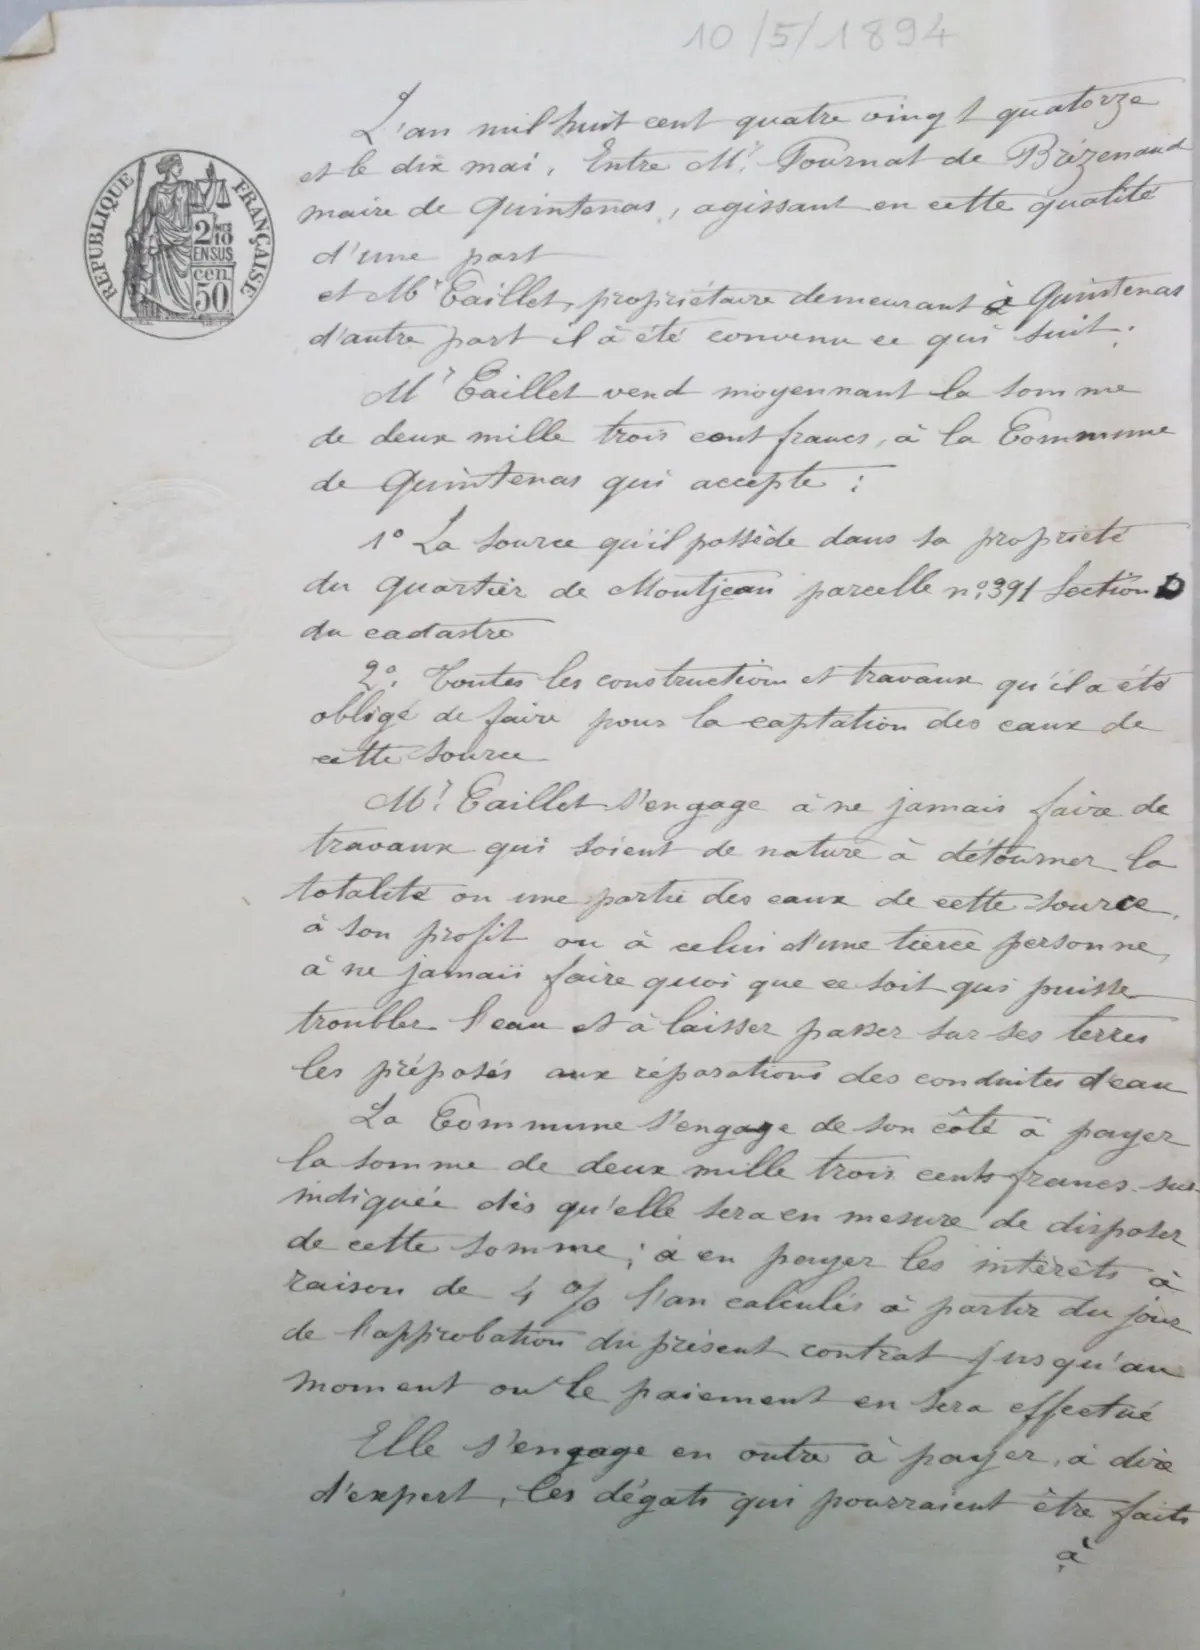 10/5/1894
L'an mil huit cent quatre vingt quatorze
et le dix mai, Entre Mr. Fournat de Brézenaud
maire de Quintenas, agissant en cette qualité
d'une part
et Mr Caillet, propriétaire demeurant à Quintenas
d'autre part il à été convenu ce qui suit.
Mr Caillet vend moyennant la somme
de deux mille trois cent francs, à la Commune
de Quintenas qui accepte :
1° La source qu'il possède dans sa propriété
du quartier de Montjean parcelle n° 391 Section D
du cadastre
2°. Toutes les constructions et travaux qu'il a été
obligé de faire pour la captation des eaux de
cette source
Mr. Caillet s'engage à ne jamais faire de
travaux qui soient de nature à détourner la
totalité ou une partie des eaux de cette source,
à son profit ou à celui d'une tierce personne,
à ne jamais faire quoi que ce soit qui puisse
troubler l'eau et à laisser passer sur ses terres
les préposés aux réparations des conduites d'eau
La Commune s'engage de son côté à payer
la somme de deux mille trois cents francs sus
indiquée dès qu'elle sera en mesure de disposer
de cette somme ; à en payer les intérêts à
raison de 4 % l'an calculés à partir du jour
de l'approbation du présent contrat jusqu'au
moment ou le paiement en sera effectué
Elle s'engage en outre à payer, à dire
d'expert, les dégats qui pourraient être faits
à
RÉPUBLIQUE FRANÇAISE
2 mes 10
EN SUS
cen.
50